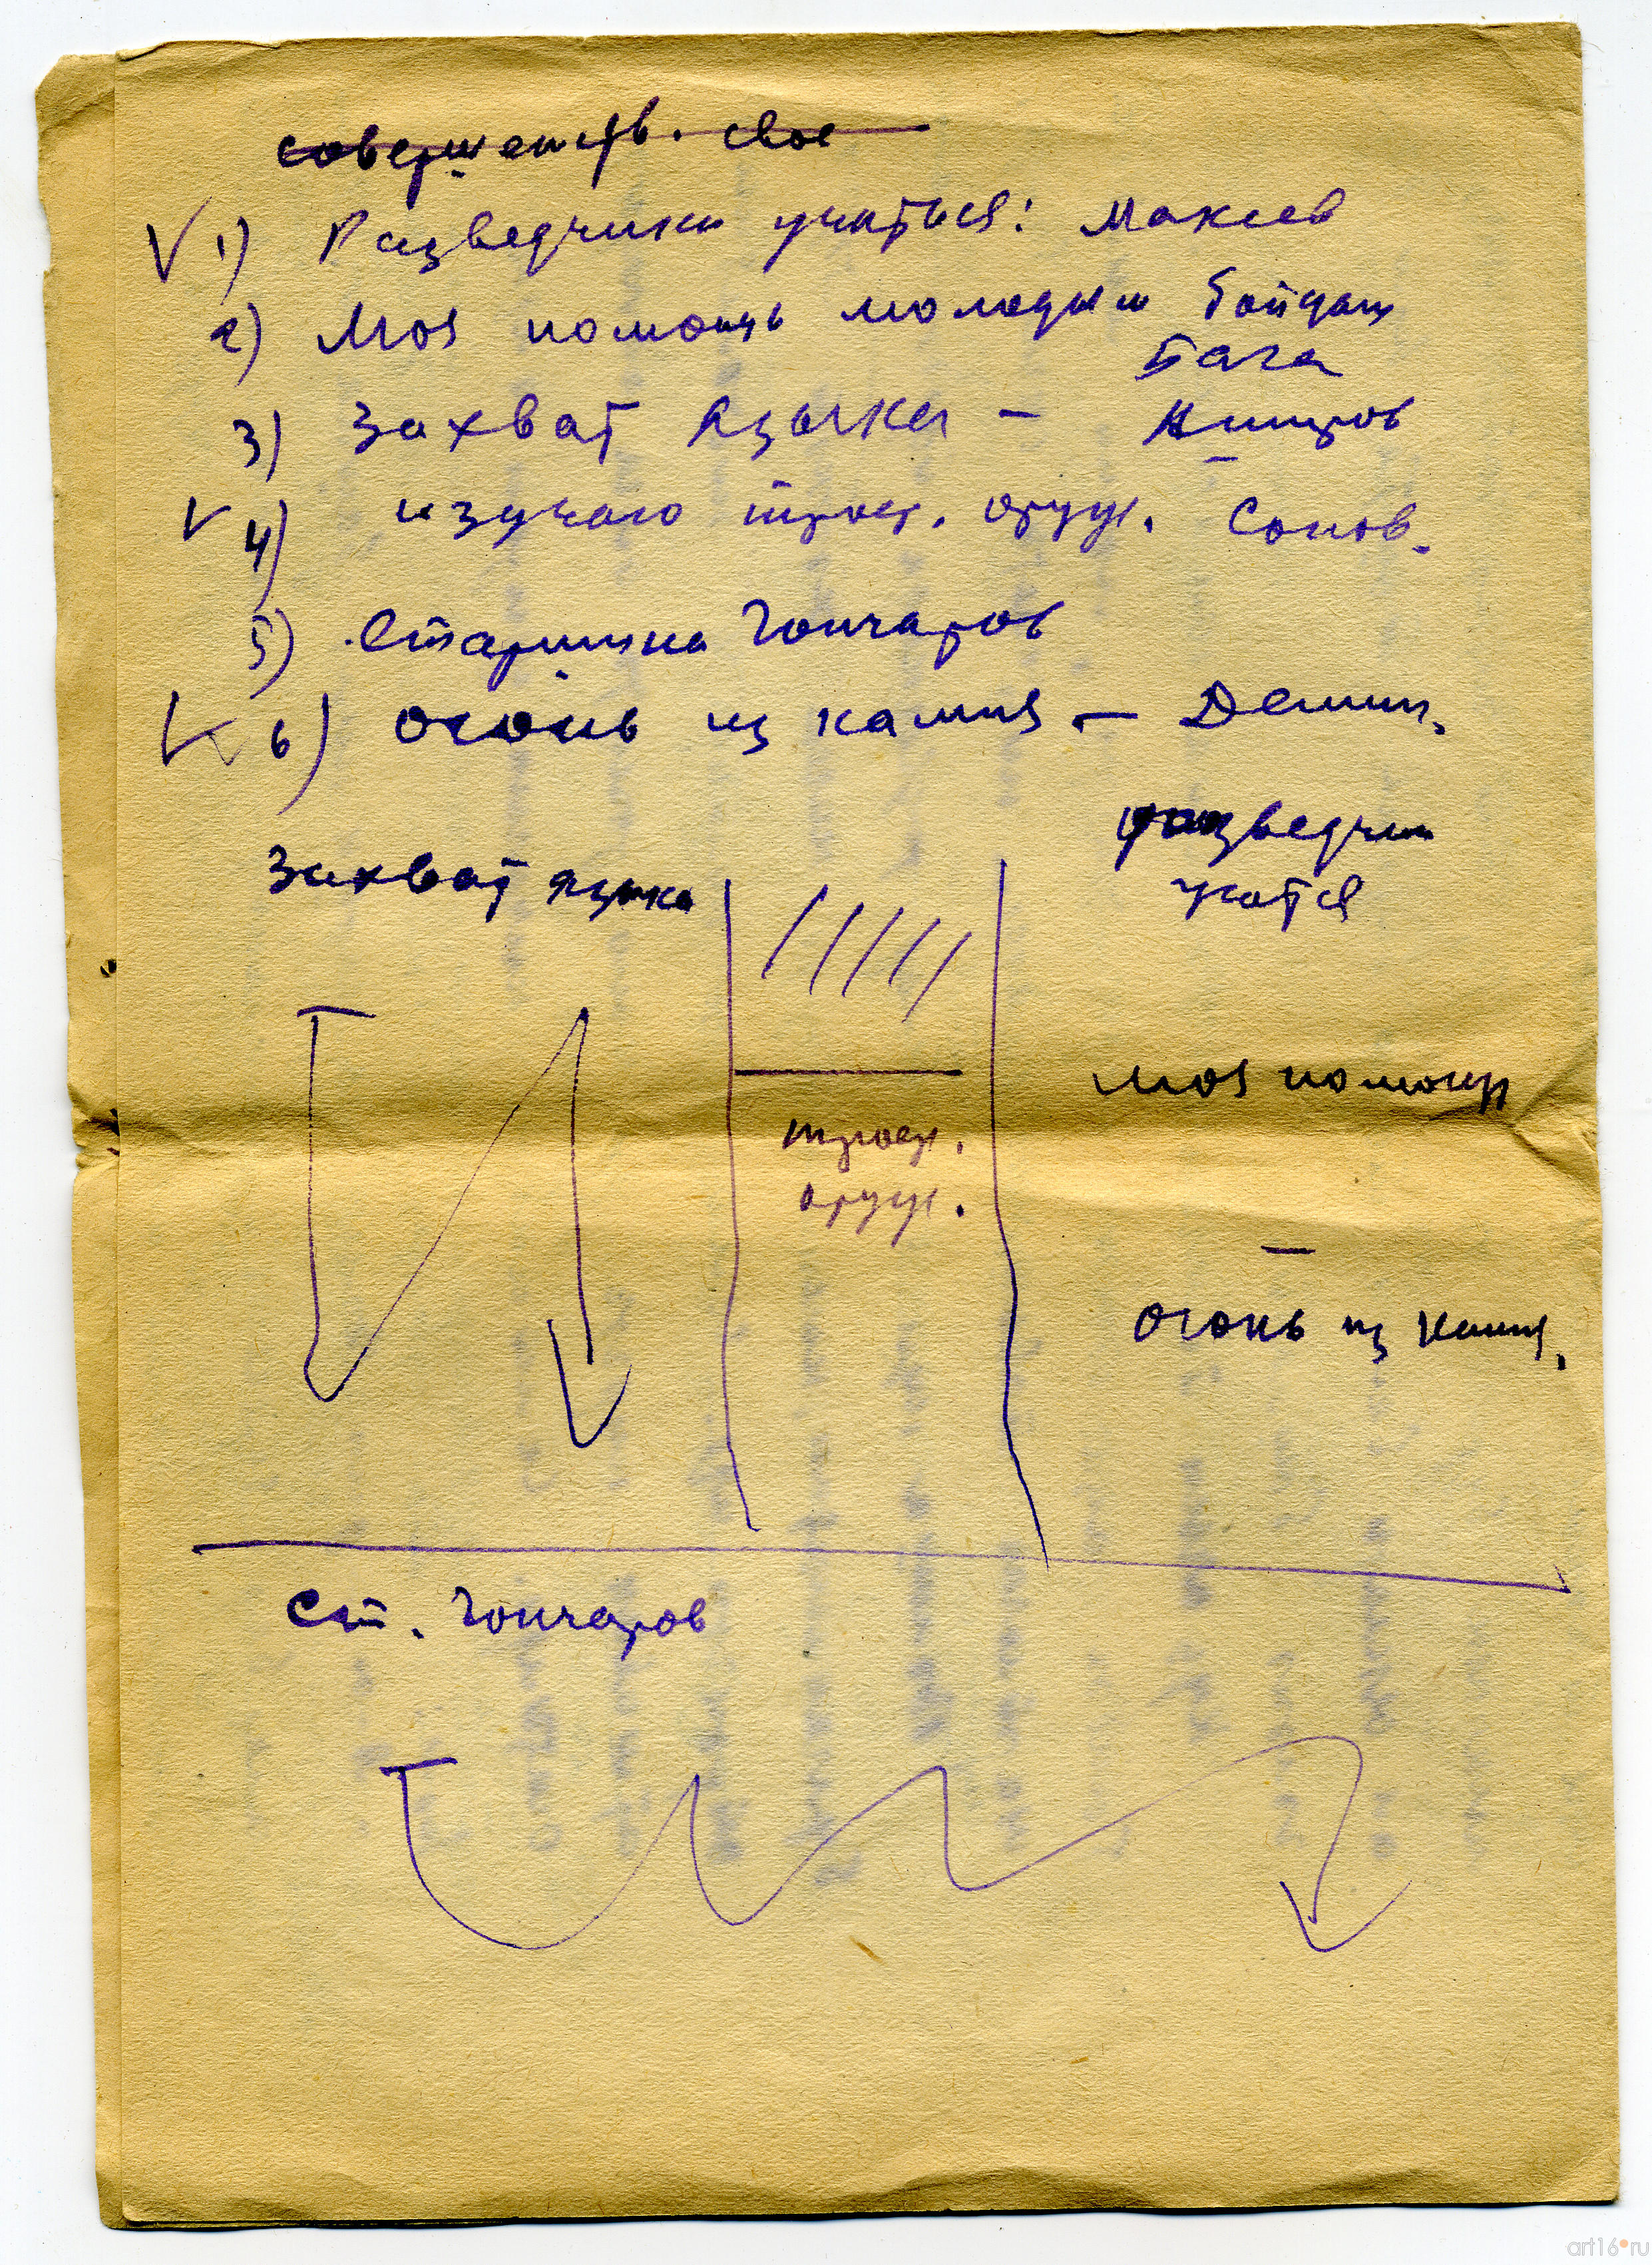 совершенств. свое
V 1) Разведчики учаться: Макеев
2) Моя помощь молодым бойцам
Бага
3) Захват языка –
V 4) изучаю троф. оруж. Сонов.
5) Старшина Гончаров
V 6) огонь из камня. – Демин.
Захват языка
разведчики
учатся
моя помощь
троф.
оруж.
огонь из камня.
Ст. Гончаров
art16.ru